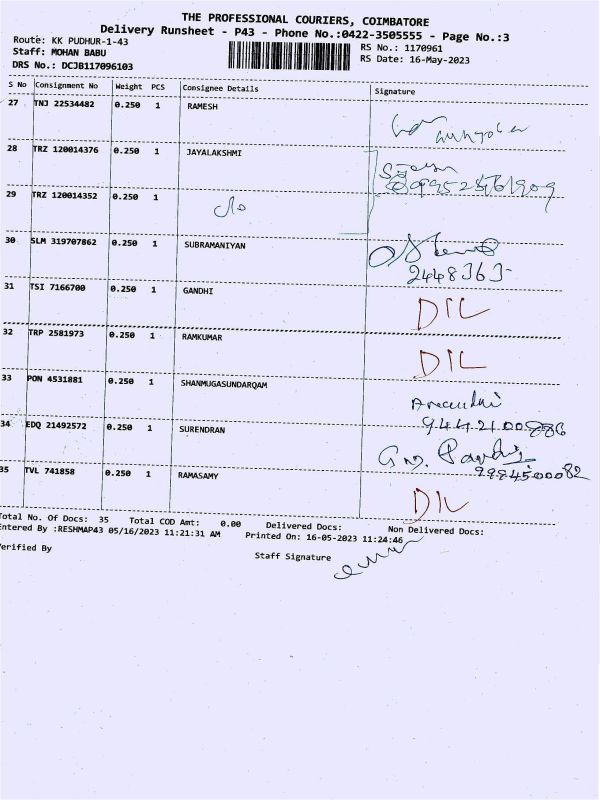 THE PROFESSIONAL COURIERS, COIMBATORE
Delivery Runsheet - P43 - Phone No.:0422-3505555 - Page No.:3
Route: KK PUDHUR-1-43
RS No.: 1170961
Staff: MOHAN BABU
RS Date: 16-May-2023
DRS No.: DCJB117096103
S No Consignment No Weight PCS Consignee Details Signature
27 TNJ 22534482 0.250 1 RAMESH
28 TRZ 120014376 0.250 1 JAYALAKSHMI
29 TRZ 120014352 0.250 1
30 SLM 319707862 0.250 1 SUBRAMANIYAN
2448363
31 TSI 7166700 0.250 1 GANDHI DIL
32 TRP 2581973 0.250 1 RAMKUMAR DIL
33 PON 4531881 0.250 1 SHANMUGASUNDARQAM
34 EDQ 21492572 0.250 1 SURENDRAN
9994500082
35 TVL 741858 0.250 1 RAMASAMY DIL
Total No. Of Docs: 35 Total COD Amt: 0.00 Delivered Docs: Non Delivered Docs:
Entered By :RESHMAP43 05/16/2023 11:21:31 AM Printed On: 16-05-2023 11:24:46
Verified By Staff Signature